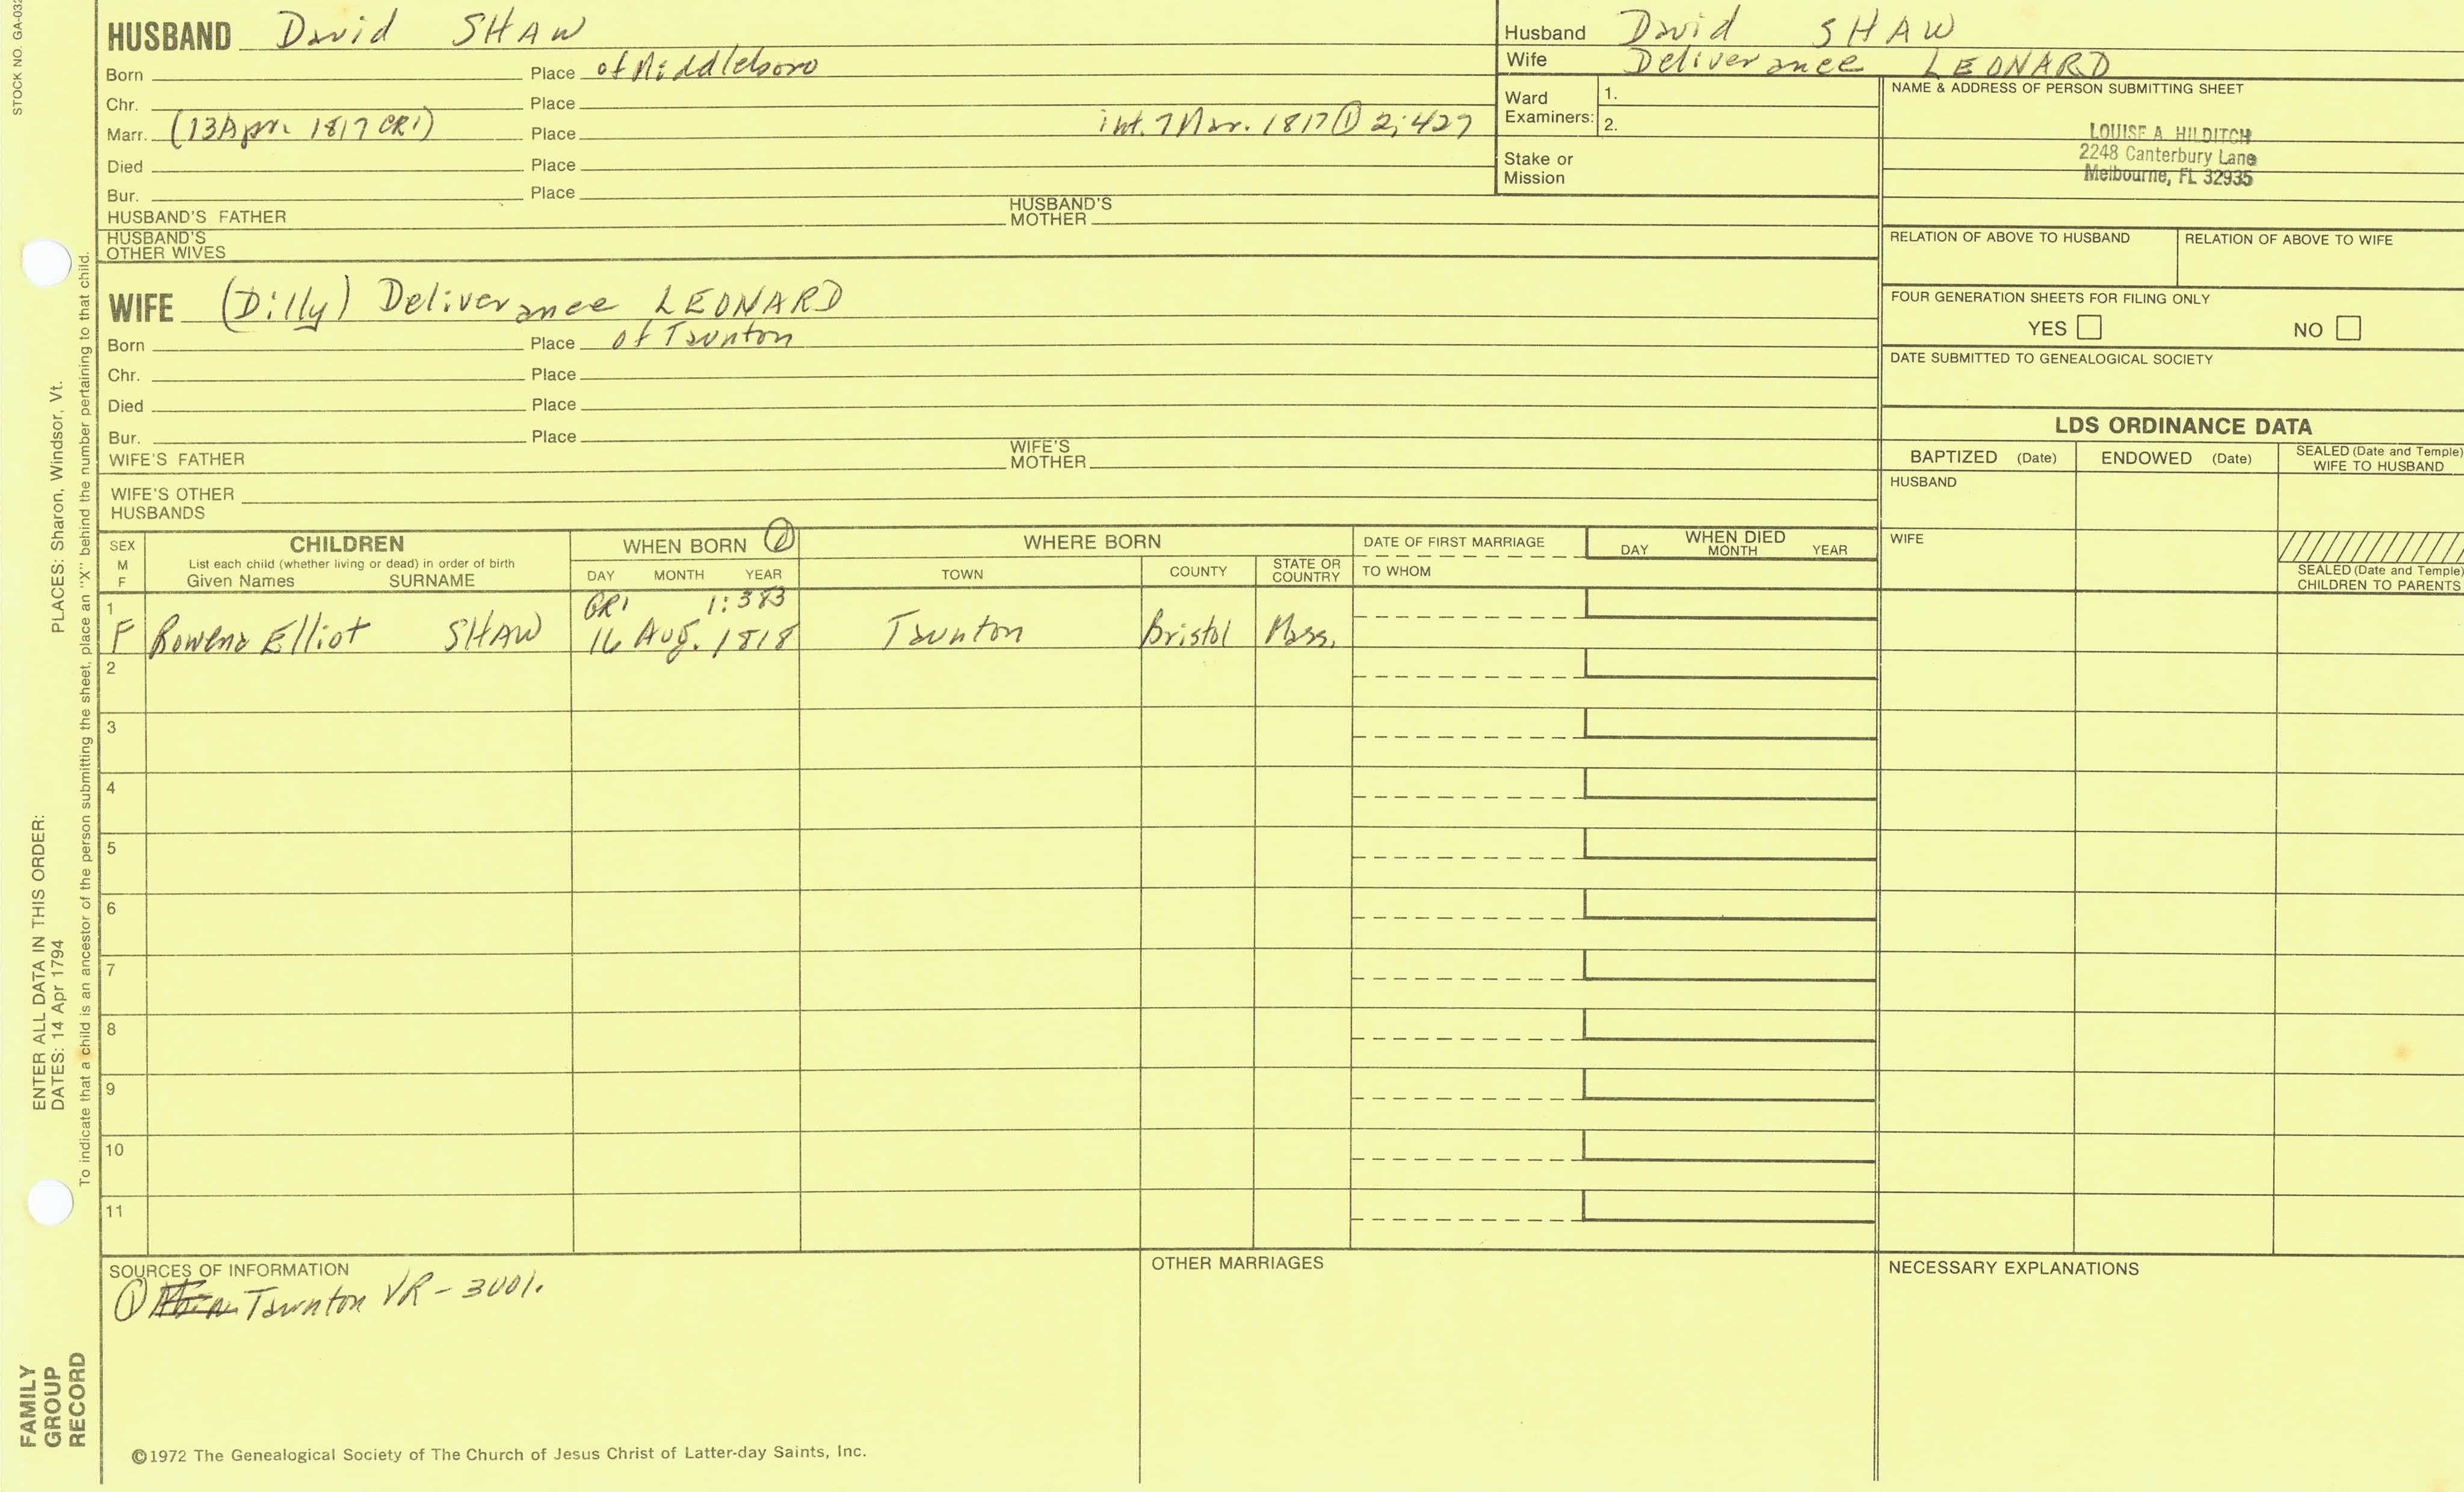 STOCK NO. GA-032
HUSBAND David SHAW
Born Place of Middleboro
Chr. Place
Marr. (13 Apr. 1817 CR1) Place int. 7 Mar. 1817 ① 2:427
Died Place
Bur. Place
HUSBAND'S FATHER HUSBAND'S MOTHER
HUSBAND'S
OTHER WIVES
Husband David SHAW
Wife Deliverance LEONARD
Ward
Examiners:
1.
2.
Stake or
Mission
NAME & ADDRESS OF PERSON SUBMITTING SHEET
LOUISE A. HILDITCH
2248 Canterbury Lane
Melbourne, FL 32935
RELATION OF ABOVE TO HUSBAND RELATION OF ABOVE TO WIFE
FOUR GENERATION SHEETS FOR FILING ONLY
YES NO
DATE SUBMITTED TO GENEALOGICAL SOCIETY
WIFE (Dilly) Deliverance LEONARD
Born Place of Taunton
Chr. Place
Died Place
Bur. Place
WIFE'S FATHER WIFE'S MOTHER
WIFE'S OTHER
HUSBANDS
LDS ORDINANCE DATA
BAPTIZED (Date) ENDOWED (Date) SEALED (Date and Temple)
WIFE TO HUSBAND
HUSBAND
WIFE
SEALED (Date and Temple)
CHILDREN TO PARENTS
SEX
M
F
CHILDREN
List each child (whether living or dead) in order of birth
Given Names SURNAME
WHEN BORN ①
DAY MONTH YEAR
WHERE BORN
TOWN COUNTY STATE OR COUNTRY
DATE OF FIRST MARRIAGE
TO WHOM
WHEN DIED
DAY MONTH YEAR
1 CR1 1:383
F Rowena Elliot SHAW 16 Aug. 1818 Taunton Bristol Mass.
2
3
4
5
6
7
8
9
10
11
SOURCES OF INFORMATION
① Taunton VR - 3001.
OTHER MARRIAGES
NECESSARY EXPLANATIONS
©1972 The Genealogical Society of The Church of Jesus Christ of Latter-day Saints, Inc.
ENTER ALL DATA IN THIS ORDER:
DATES: 14 Apr 1794 PLACES: Sharon, Windsor, Vt.
To indicate that a child is an ancestor of the person submitting the sheet, place an "X" behind the number pertaining to that child.
FAMILY
GROUP
RECORD